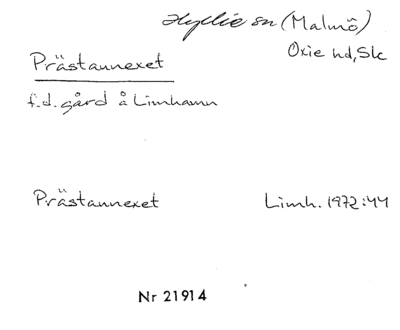 Hyllie sn (Malmö)
Oxie hd, Sk
Prästannexet
f.d. gård å Limhamn
Prästannexet Limh. 1972:44
Nr 21914